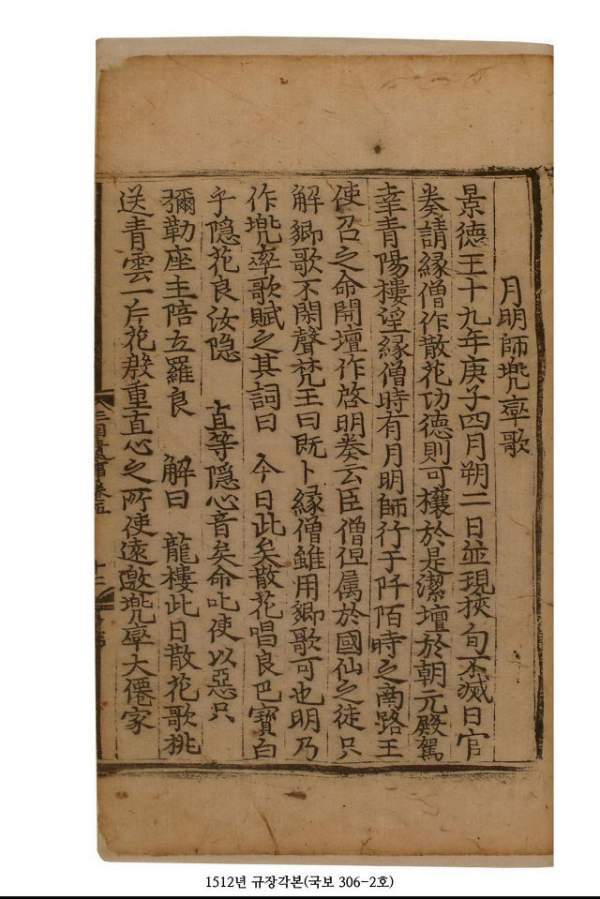 月明師兠率歌
景德王十九年庚子四月朔二日並現挾旬不滅日官
奏請緣僧作散花功德則可禳於是潔壇於朝元殿駕
幸青陽樓望緣僧時有月明師行于阡陌時之南路王
使召之命開壇作啓明奏云臣僧但属於國仙之徒只
解鄉歌不閑聲梵王曰既卜緣僧雖用鄉歌可也明乃
作兠率歌賦之其詞曰 今日此矣散花唱良巴寳白
乎隐花良汝隐 直等隐心音矣命叱使以惡只
彌勒座主陪立羅良 解曰 龍樓此日散花歌挑
送青雲一片花殷重直心之所使遠邀兠率大僊家
三國遺事卷五
1512년 규장각본(국보 306-2호)